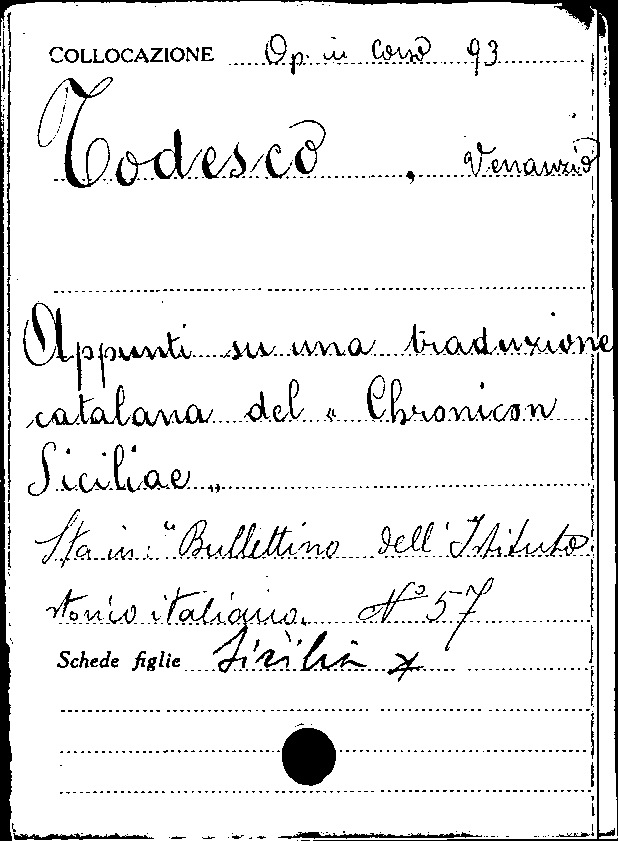 COLLOCAZIONE Op. in Corso 93
Todesco, Venanzio
Appunti su una traduzione
catalana del „ Chronicon
Siciliae „
Sta in: "Bullettino dell'Istituto
storico italiano. N° 57
Schede figlie Sicilia *